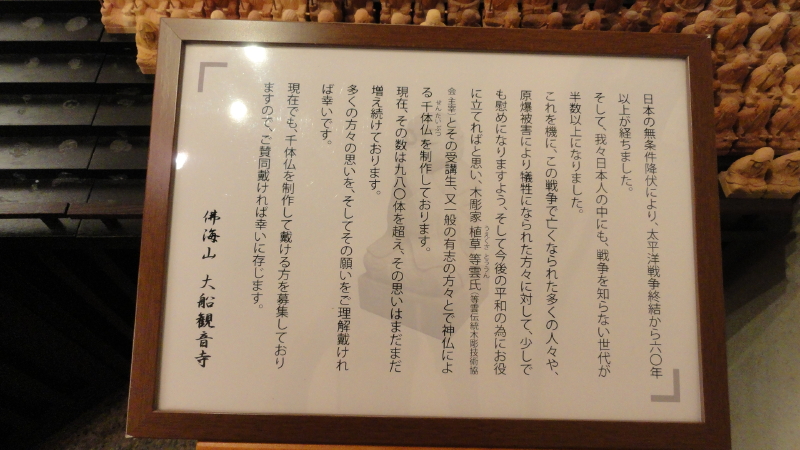 日本の無条件降伏により、太平洋戦争終結から六〇年
以上が経ちました。
そして、我々日本人の中にも、戦争を知らない世代が
半数以上になりました。
これを機に、この戦争で亡くなられた多くの人々や、
原爆被害により犠牲になられた方々に対して、少しで
も慰めになりますよう、そして今後の平和の為にお役
に立てればと思い、木彫家 植草 等雲氏(等雲伝統木彫技術協
うえくさ とううん
会 主宰)とその受講生、又一般の有志の方々とで神仏によ
る 千体仏 を制作しております。
せんたいぶつ
現在、その数は九八〇体を超え、その思いはまだまだ
増え続けております。
多くの方々の思いを、そしてその願いをご理解戴けれ
ば幸いです。
現在でも、千体仏を制作して戴ける方を募集しており
ますので、ご賛同戴ければ幸いに存じます。
佛海山 大船観音寺